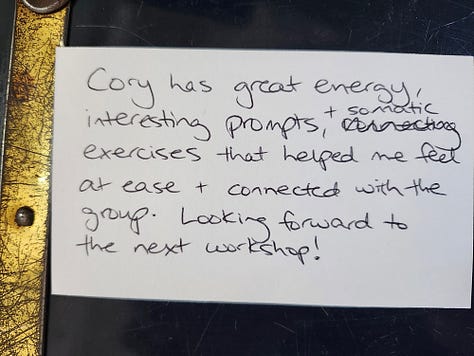 Cory has great energy,
interesting prompts, + somatic
exercises that helped me feel
at ease + connected with the
group. Looking forward to
the next workshop!